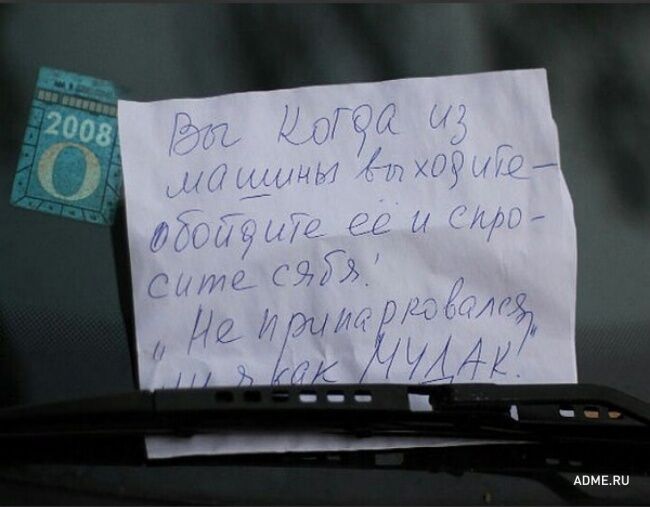 2008
О
Вы когда из
машины выходите—
обойдите её и спро-
сите сябя!
„Не припарковался
ли я как МУДАК!"
ADME.RU